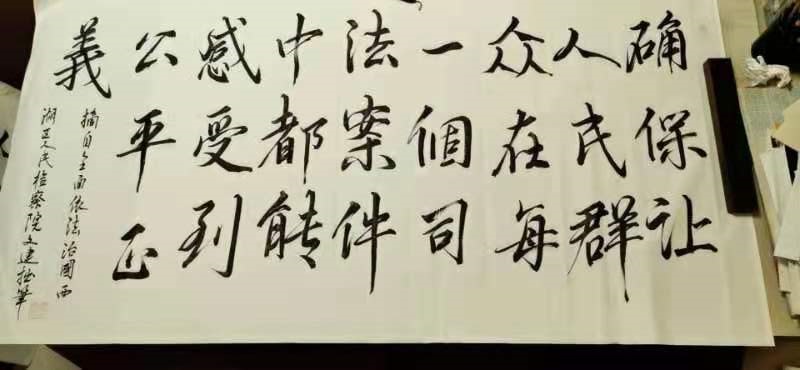 确保让
人民群
众在每
一個司
法案件
中都能
感受到
公平正
義
摘自全面依法治國西
湖区人民检察院文建拙筆